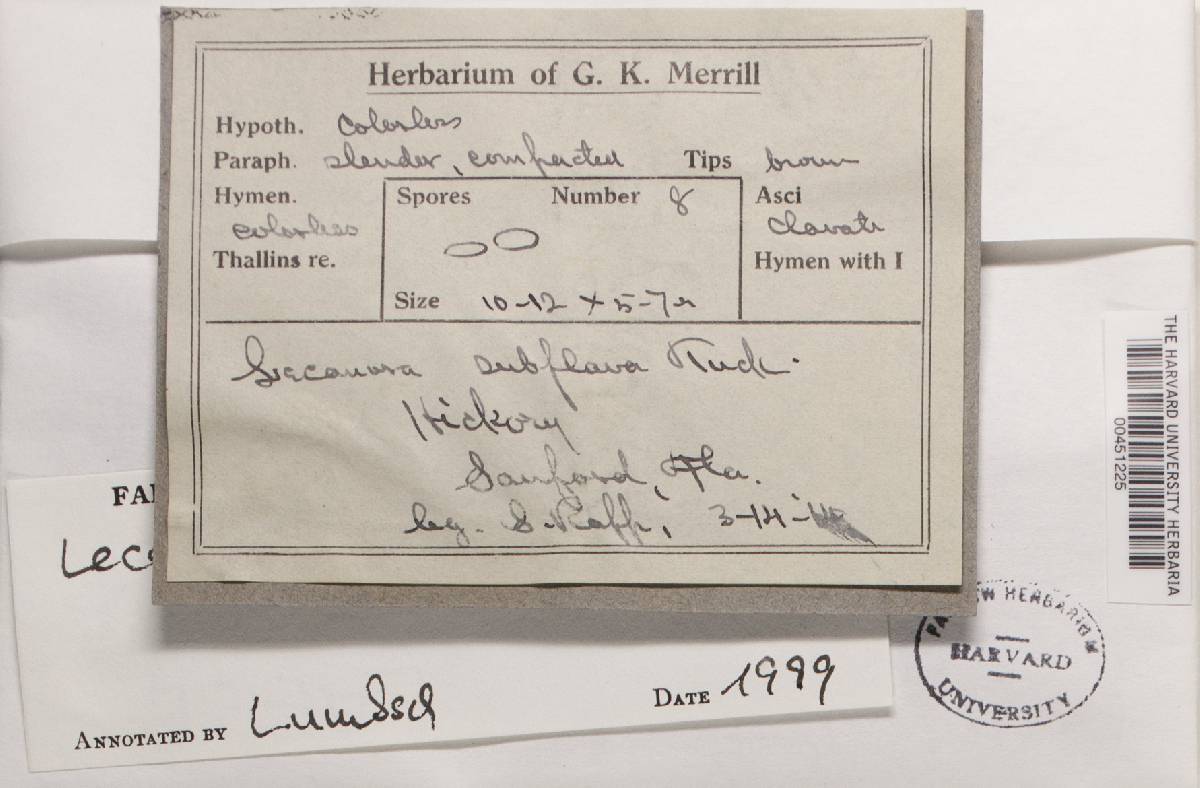 Herbarium of G. K. Merrill
Hypoth. Colorless
Paraph. slender, compacted Tips brown
Hymen. colorless
Spores Number 8
Asci clavate
Thallins re.
Hymen with I
Size 10-12 x 5-7µ
Lecanora subflava Tuck.
Hickory
Sanford, Fla.
leg. S. Rapp, 3-14-
FA
Leco
ANNOTATED BY Lumbsch
DATE 1999
THE HARVARD UNIVERSITY HERBARIA
00451225
FA W HERBARIUM
HARVARD
UNIVERSITY